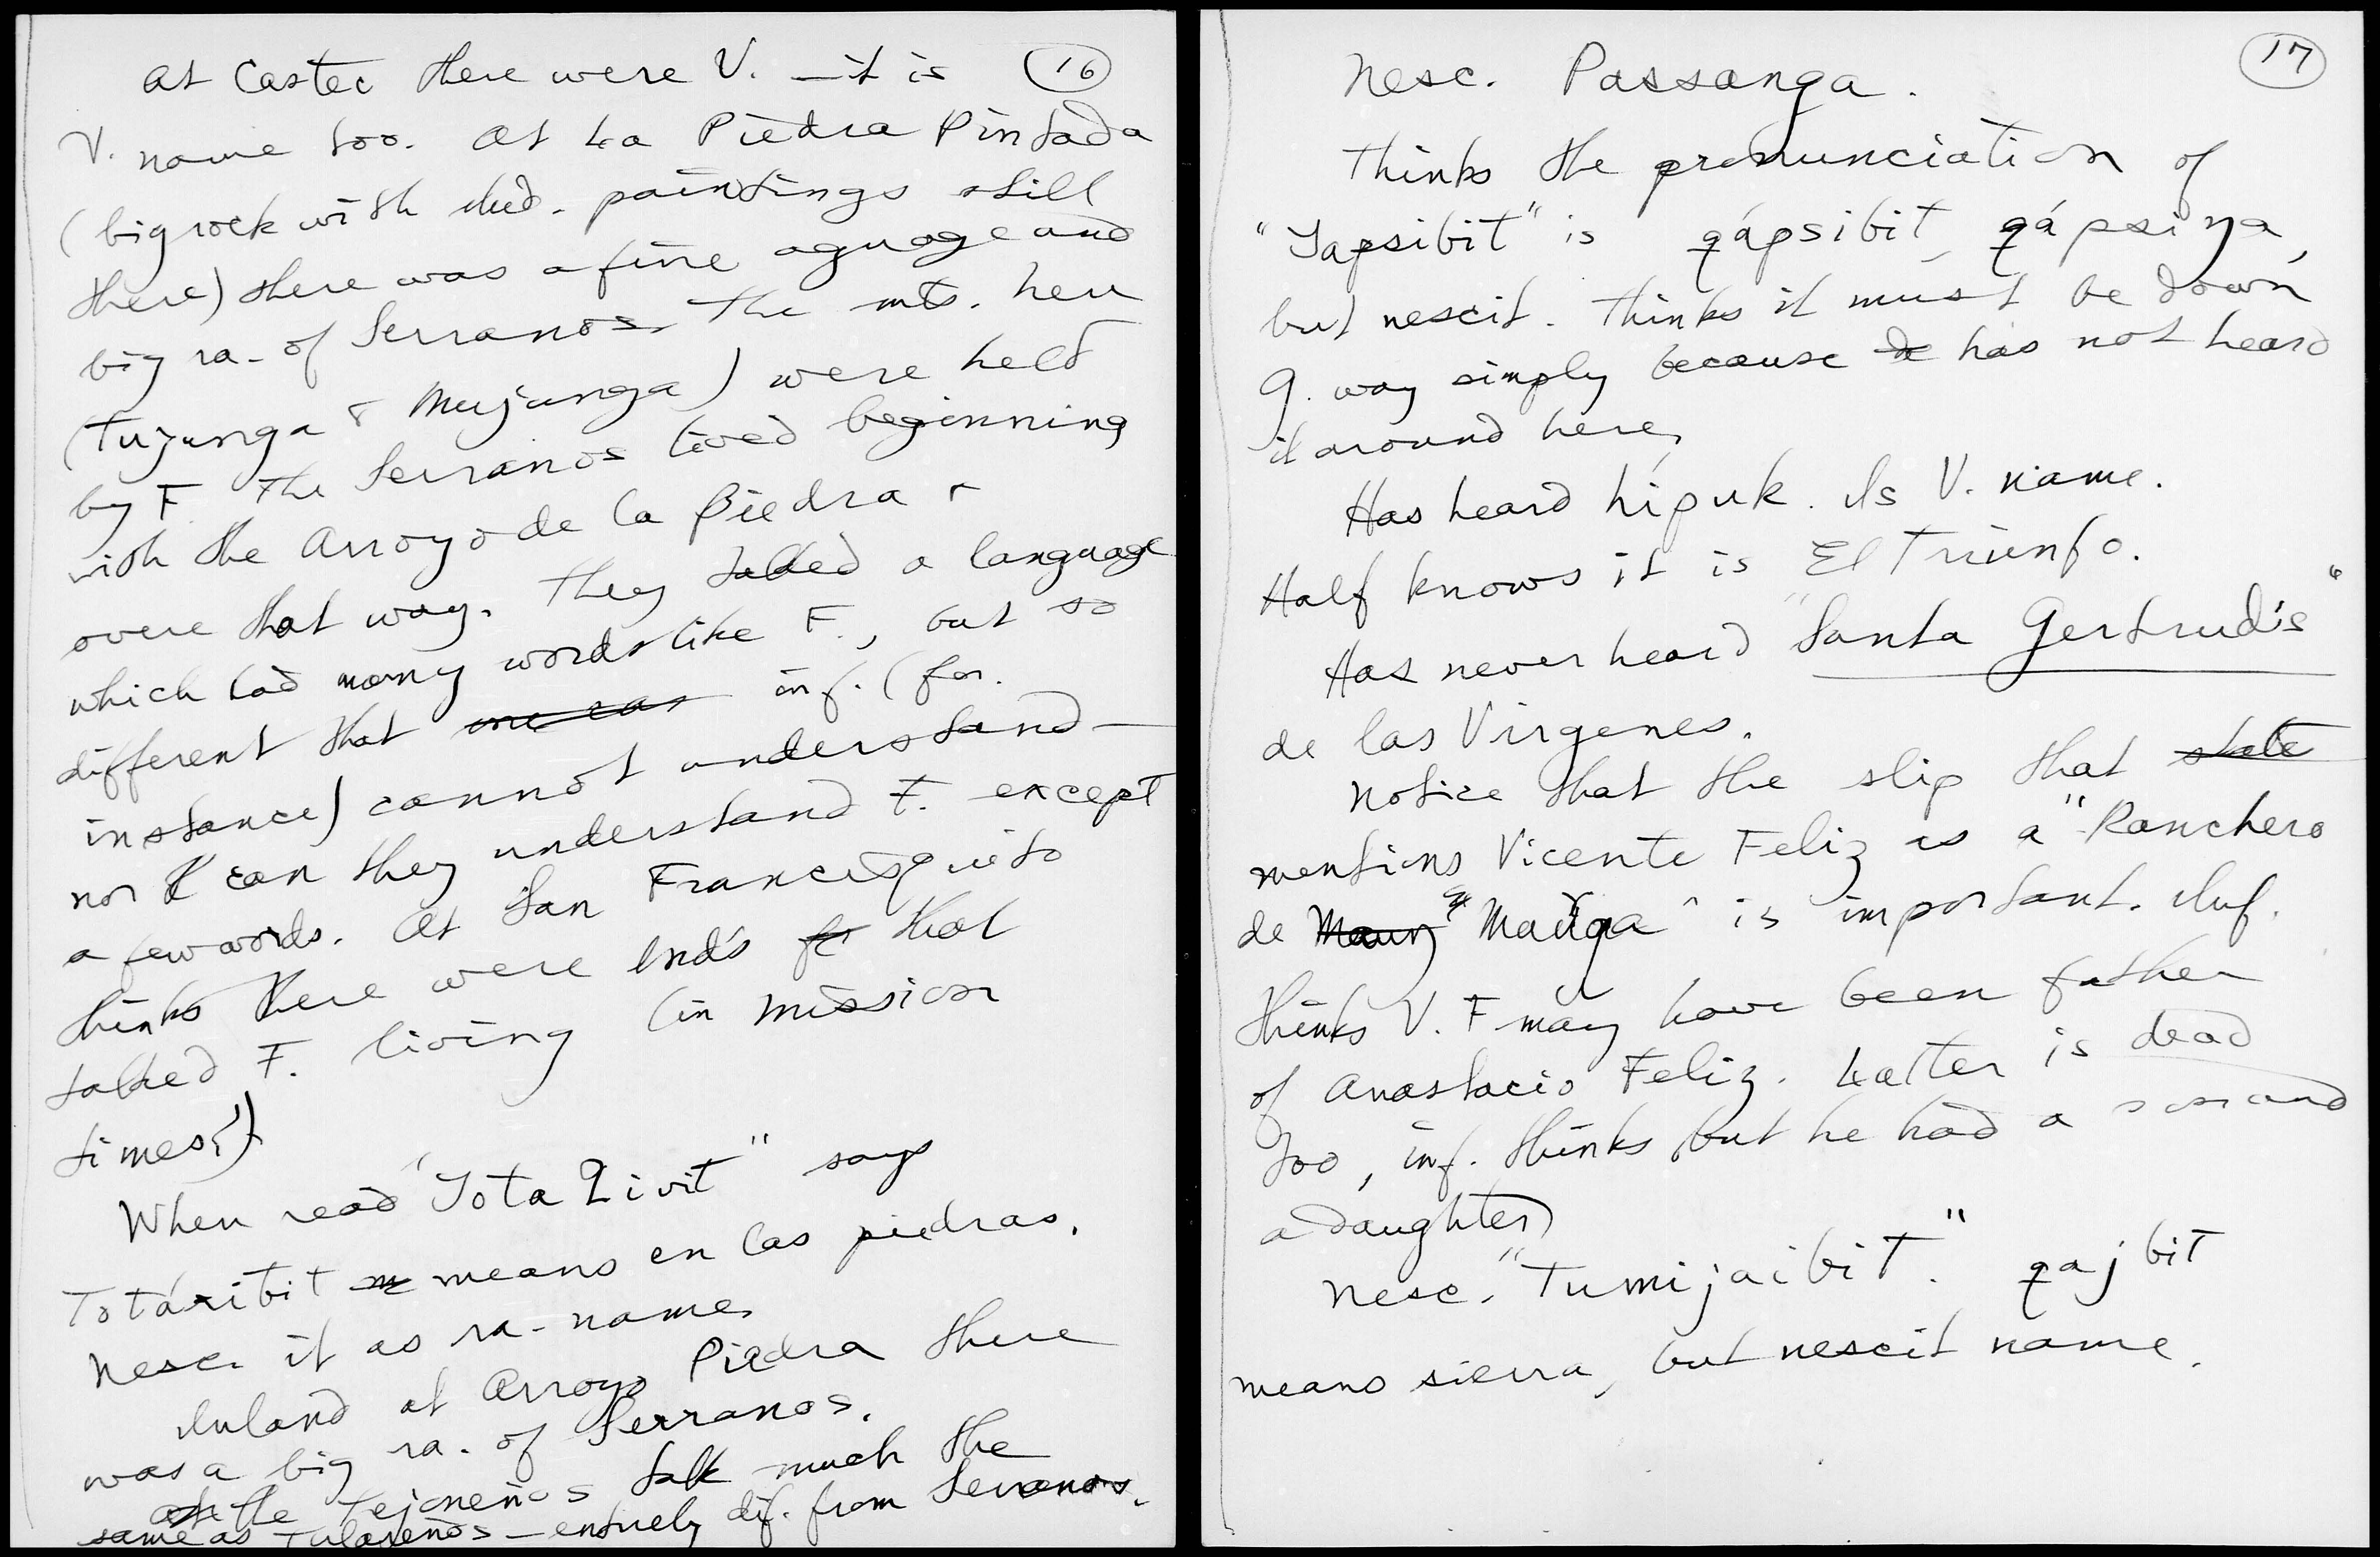 16
At Castec there were V. — it is
V. name too. At La Piedra Pintada
(big rock with Ind. paintings still
there) there was a fine aguage and
big ra. of Serranos. The mts. here
(Tujunga & Mujunga) were held
by F. The Serranos lived beginning
with the Arroyo de la Piedra &
overe that way. They talked a language
which had many words like F., but so
different that one can inf. (for
instance) cannot understand —
nor can they understand F. except
a few words. At San Francisquito
thinks there were Inds that
talked F. living (in mission
times?)
When read "Tota Livit" says
Totáxibit means en las piedras.
Nesc. it as ra-name.
Inland at Arroyo Piedra there
was a big ra. of Serranos.
the Tejoneños talk much the
same as Tulareños — entirely dif. from Serranos.
17
Nesc. Passanga.
Thinks the pronunciation of
"Japsibit" is qápsibit, qápsiŋa,
but nescit. Thinks it must be down
G. way simply because has not heard
it around here.
Has heard hipuk. Is V. name.
Half knows it is El Triunfo.
Has never heard "Santa Gertrudis"
de las Virgenes.
Notice that the slip that state
mentions Vicente Feliz as a "Ranchero
de Maun "Mauga" is important. Inf.
thinks V. F may have been father
of Anastacio Feliz. Latter is dead
too, inf. thinks, but he had a son and
a daughter)
Nesc. "Tumijaibit." qajbit
means sierra, but nescit name.